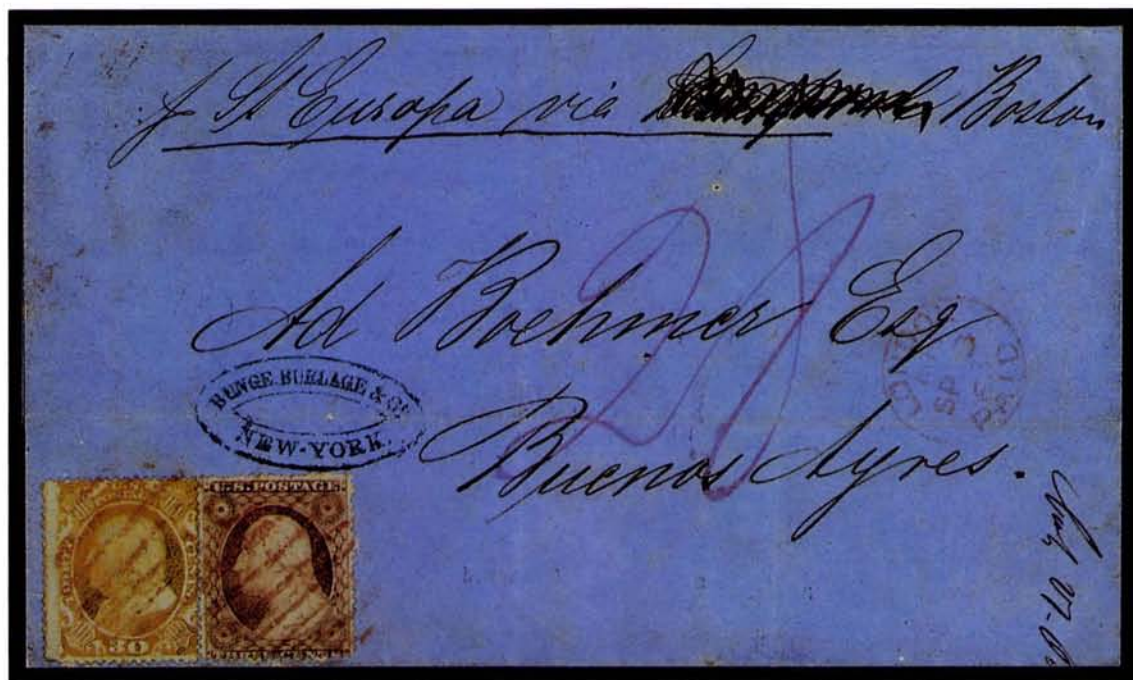 St Europa via Boston
Ad Boehmer Esq
Buenos Ayres.
BUNGE BURLAGE & Co.
NEW-YORK.
28
SP 3
PAID
U.S. POSTAGE
THREE CENTS
30